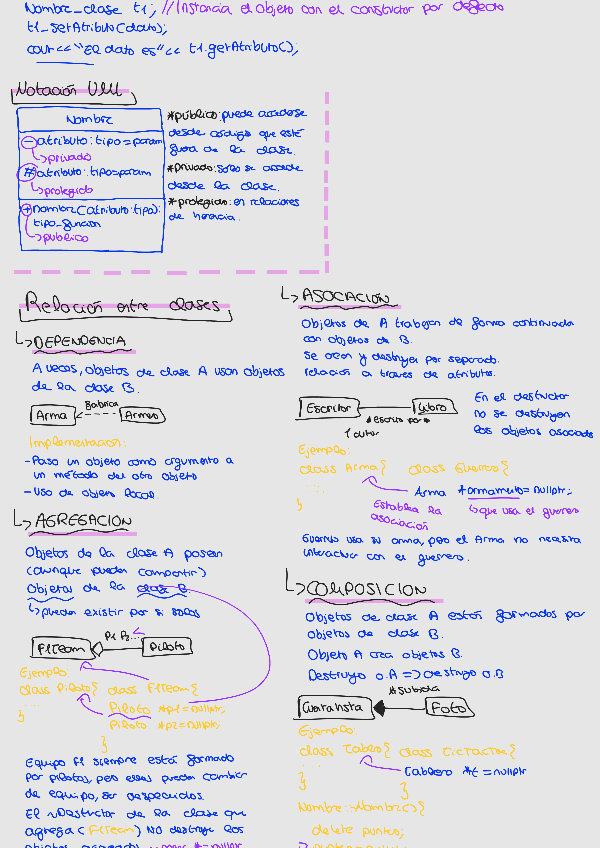 Nombre_clase t1; //Instancia el objeto con el constructor por defecto
t1_setAtributo(dato);
cout<<"El dato es"<< t1.getAtributo();
Notación UML
Nombre
-atributo:tipo=param
↳privado
#atributo:tipo=param
↳protegido
+nombre(atributo:tipo):
tipo_función
↳público
*público:puede accederse
desde código que esté
fuera de la clase.
*privado:solo se accede
desde la clase.
*protegido:en relaciones
de herencia.
Relación entre clases
↳DEPENDENCIA
A veces, objetos de clase A usan objetos
de la clase B.
Arma
fabrica
Armero
Implementación:
-Paso un objeto como argumento a
un método del otro objeto
-Uso de objeto local.
↳AGREGACIÓN
Objetos de la clase A poseen
(aunque pueden compartir)
Objetos de la clase B.
↳pueden existir por si solos
F1Team
P1 P2...
Piloto
Ejemplo:
class Piloto{ class F1Team{
...
Piloto *p1=nullptr;
}
Piloto *p2=nullptr;
}
Equipo F1 siempre está formado
por pilotos, pero esos pueden cambiar
de equipo, ser despedidos.
El destructor de la clase que
agrega (F1Team) NO destruye los
↳ASOCIACIÓN
Objetos de A trabajan de forma continuada
con objetos de B.
Se crean y destruyen por separado.
relación a través de atributos.
Escritor
Libro
*escrito por*
1 autor
En el destructor
no se destruyen
los objetos asociados
Ejemplo:
class Arma{ class Guerrero{
...
Arma *armamento=nullptr;
}
Establece la
asociación
↳que usa el guerrero
Guerrero usa su arma, pero el Arma no necesita
interactuar con el guerrero.
↳COMPOSICIÓN
Objetos de clase A están formados por
objetos de clase B.
Objeto A crea objetos B.
Destruyo o.A => destruyo o.B
CuentaInsta
Foto
Ejemplo:
class Tablero{ class TicTacToe{
...
Tablero *t=nullptr
}
}
Nombre ~Nombre(){
delete puntero;